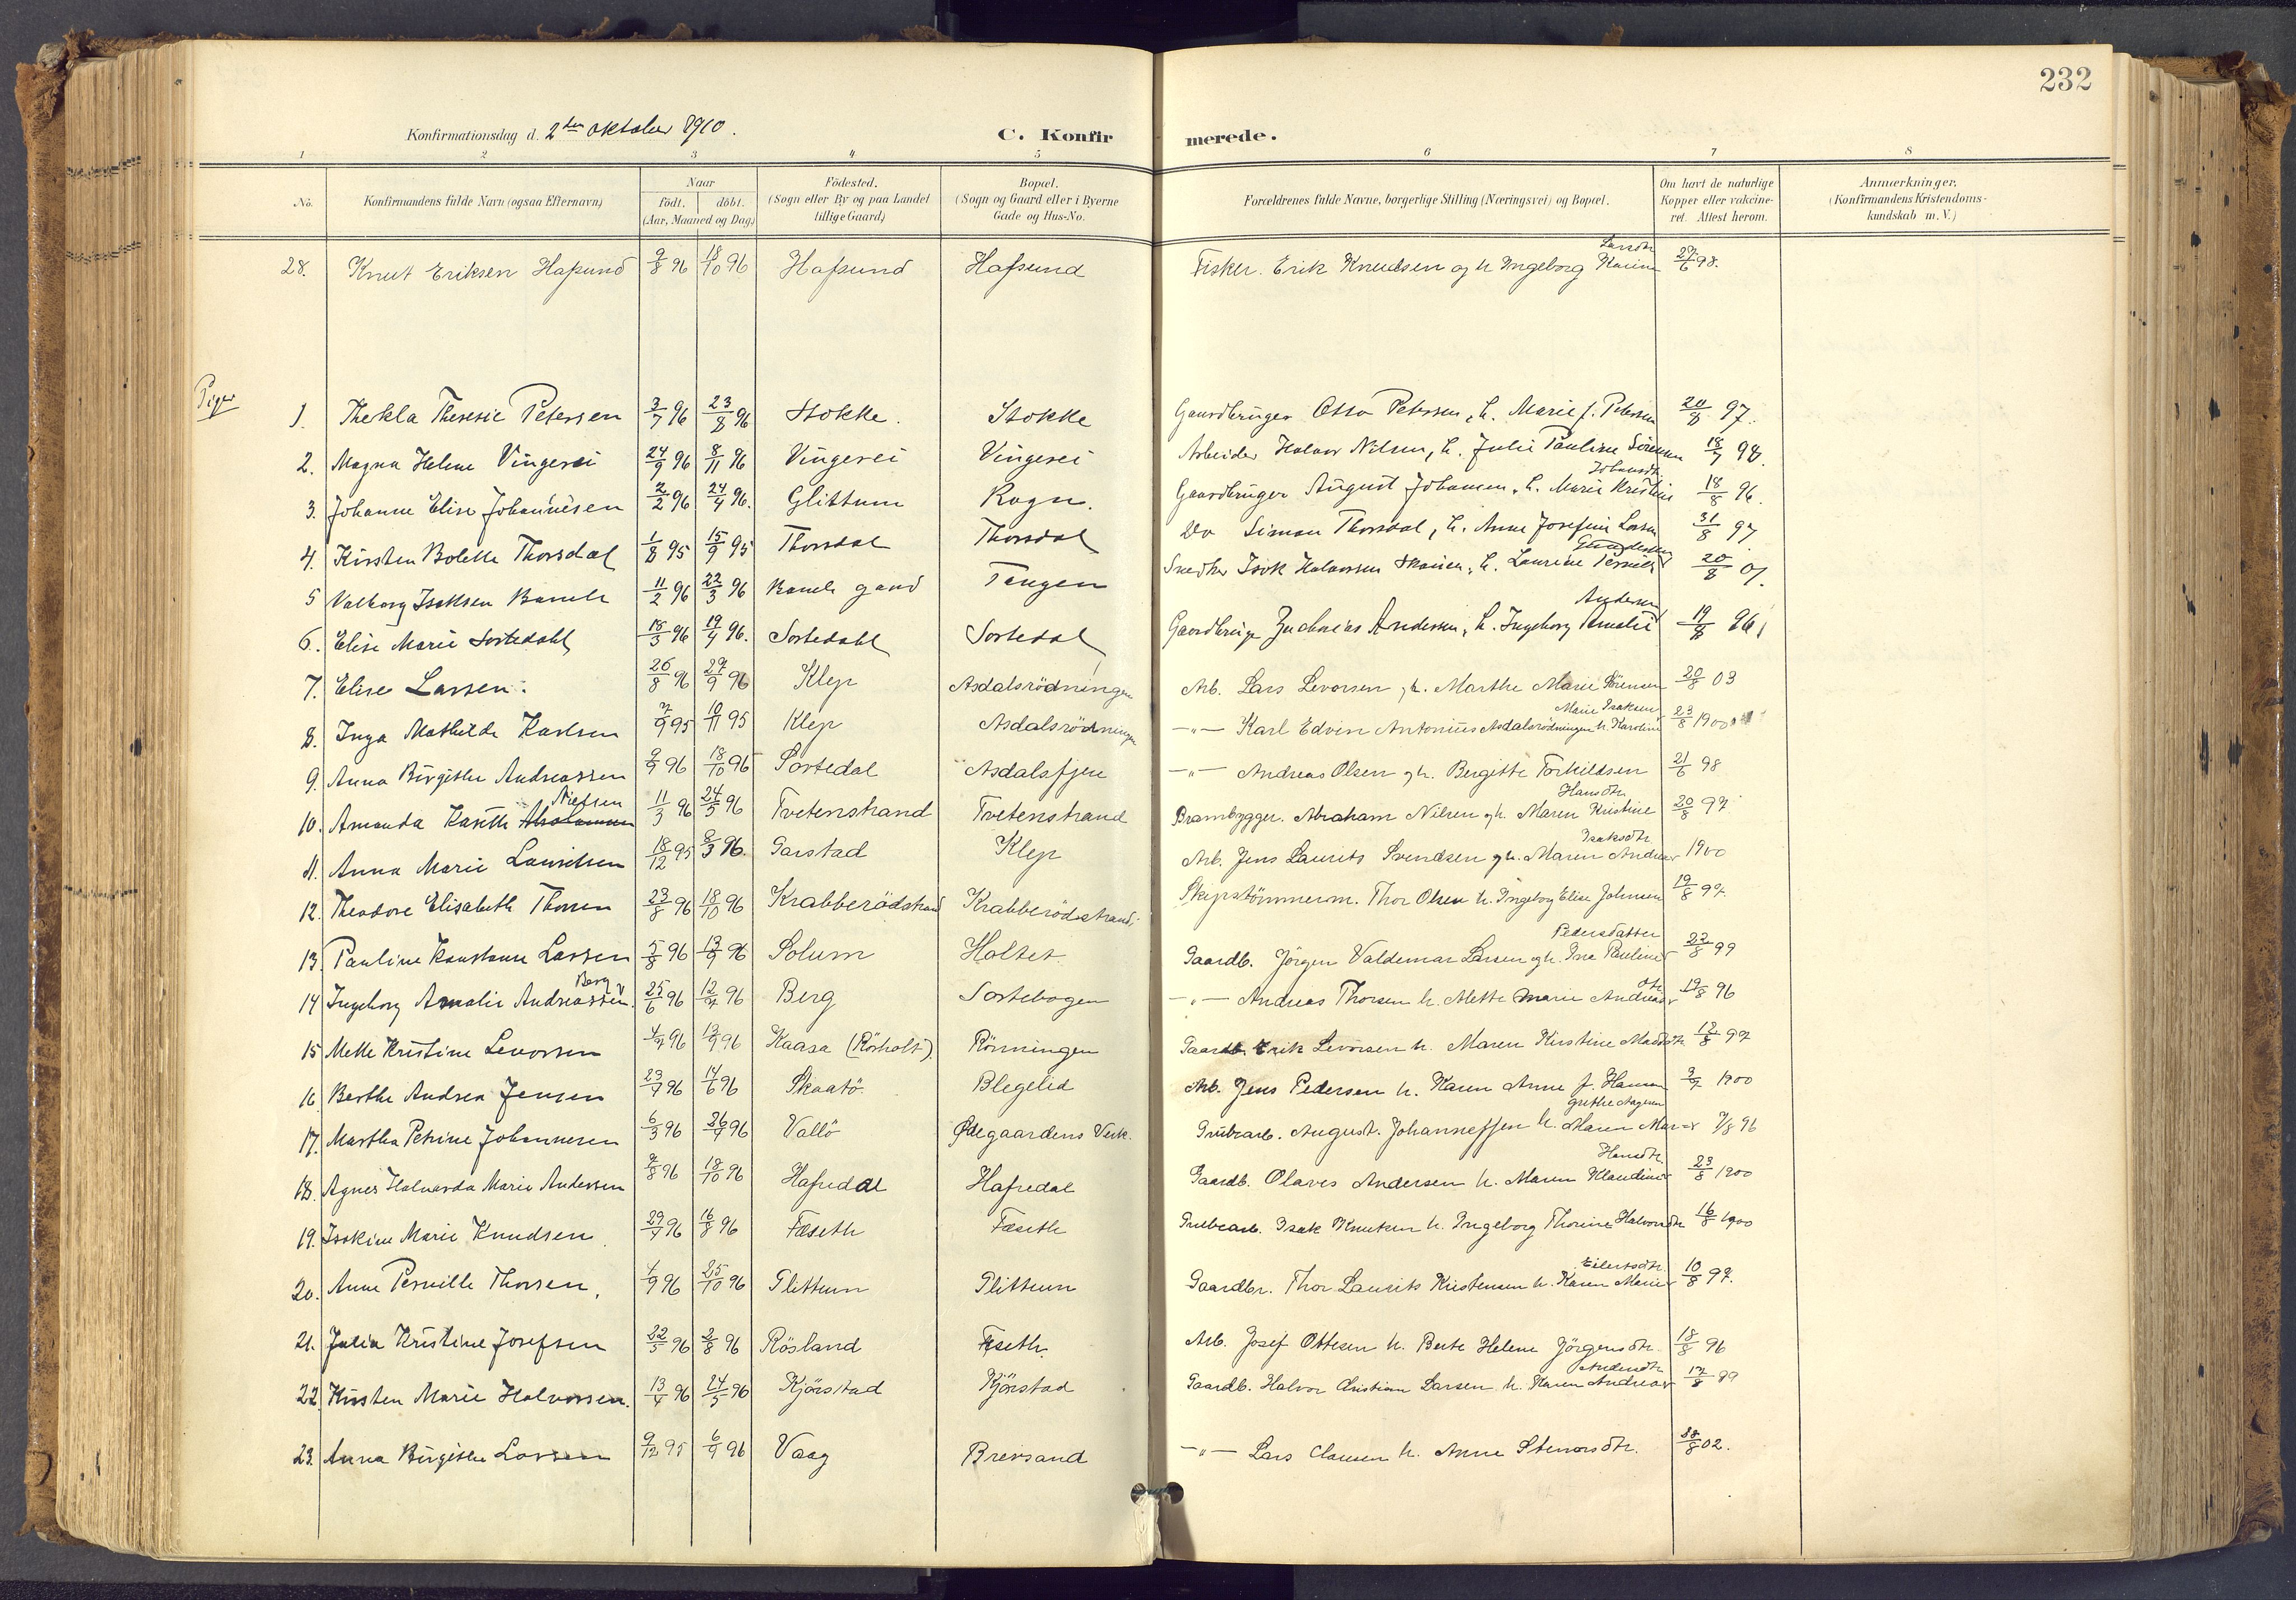 232
Konfirmationsdag d. 2den oktober 1910.
C. Konfirmerede.
1 2 3 4 5 6 7 8
No. Konfirmandens fulde Navn (ogsaa Efternavn) Naar födt. döbt. (Aar, Maaned og Dag) Födested. (Sogn eller By og paa Landet tillige Gaard) Bopæl. (Sogn og Gaard eller i Byerne Gade og Hus-No. Forældrenes fulde Navne, borgerlige Stilling (Næringsvei) og Bopæl. Om havt de naturlige Kopper eller vakcineret. Attest herom. Anmærkninger. (Konfirmandens Kristendomskundskab m. V.)
28. Knut Eriksen Hafsund 9/8 96 18/10 96 Hafsund Hafsund Fisker. Erik Knudsen og h. Ingeborg Karine Larsdtr 27/6 98.
Piger
1. Thekla Theresie Petersen 3/7 96 23/8 96 Stokke. Stokke Gaardbruger Otto Petersen, h. Marie f. Petersen 20/8 97.
2. Magna Helene Vingerei 24/9 96 8/11 96 Vingerei Vingerei Arbeider Halvor Nilsen, h. Julie Pauline Sörensen 18/7 98.
3. Johanne Elise Johannesen 2/2 96 24/4 96. Glittum Rogn. Gaardbruger August Johansen, h. Marie Kristine Johansdtr. 18/8 96.
4. Kirsten Bolette Thorsdal 1/8 95 15/9 95 Thorsdal Thorsdal Do Simon Thorsdal, h. Anne Josefine Larsen 31/8 97
5 Valborg Isaksen Bamle 11/2 96 22/3 96 Bamle gaard Tangen Snedker Isak Halvorsen, h. Laurine Pernille 20/8 07.
6. Elise Marie Sortedahl 18/3 96 19/4 96. Sortedahl Sortedal Gaardbruger Zacharias Andersen, h. Ingeborg Amalie Andersen 19/8 96
7. Elise Larsen. 26/8 96 27/9 96 Klep Asdalsrödningen Arb. Lars Levorsen, h. Marthe Marie Sörensen 20/8 03
8. Inga Mathilde Karlsen 7/9 95 10/11 95 Klep Asdalsrödningen —"— Karl Edvin Antonius Asdalsrödningen h. Karoline Marie Isaksen 23/8 1900
9. Anna Birgithe Andreassen 9/9 96 18/10 96 Sortedal Asdalsfjern —"— Andreas Olsen og h. Bergitte Torkildsen 21/6 98
10. Amanda Kasette Nielsen 11/3 96 24/5 96 Tvetenstrand Tvetenstrand Brambygger. Abraham Nilsen og h. Maren Kristine Hansdtr. 20/8 97
11. Anna Marie Lauritsen 18/12 95 8/3 96. Garstad Klep Arb. Jens Laurits Svendsen og h. Maren Andrea Isaksdtr. 1900
12. Theodore Elisabeth Thorsen 23/8 96 18/10 96 Krabberödstrand Krabberödstrand. Skipstömmerm. Thor Olsen h. Ingeborg Elise Johnsen 19/8 97.
13. Pauline Konstanse Larsen 5/8 96 13/9 96 Solum Holtet Gaardb. Jörgen Valdemar Larsen og h. Ine Pauline Pedersdatter 22/8 99
14 Ingeborg Amalie Andreassen Berg 25/6 96 12/7 96 Berg Sortebogen —"— Andreas Thorsen h. Mette Marie Andreasdtr 19/8 96
15 Mette Kristine Levorsen 4/7 96 13/9 96 Kaasa (Rörholt) Rönningen Gaardb. Erik Levorsen h. Maren Kirstine Madsdtr. 12/8 97
16 Berthe Andrea Jensen 23/4 96 14/6 96 Skaatö. Blegelid Arb. Jens Pedersen h. Karen Anne f. Hansen 3/7 1900
17. Martha Petrine Johannesen 6/3 96 26/4 96 Vallö Ødegaardens Verk. Grubearb. August Johannessen h. Maren Margrethe Aagesen 7/8 96
18. Agnes Halvarda Marie Andersen 7/8 96 18/10 96 Hafredal Hafredal Gaardb. Olaves Andersen h. Maren Klaudine Hansdtr. 23/8 1900
19. Isakine Marie Knudsen 29/4 96 16/8 96 Fæseth Fæseth Grubearb. Isak Knutsen h. Ingeborg Thorine Halvorsdtr 16/8 1900
20. Anne Pernille Thorsen, 4/9 96 25/10 96 Glittum Glittum Gaardbr. Thor Laurits Kristensen h. Karen Marie Eilertsdtr. 10/8 97.
21. Julia Kristine Josefsen 22/5 96 2/8 96 Rösland Fæseth. Arb. Josef Ottesen h. Berte Helene Jörgensdtr. 18/8 96
22. Kirsten Marie Halvorsen. 13/4 96 24/5 96 Kjörstad Kjörstad Gaardb. Halvor Christian Larsen h. Karen Andrea Andersdtr. 12/8 99
23. Anna Birgithe Larsen 9/12 95 6/4 96 Vaag Brevsand —"— Lars Clausen h. Anne Stenersdtr. 28/8 02.